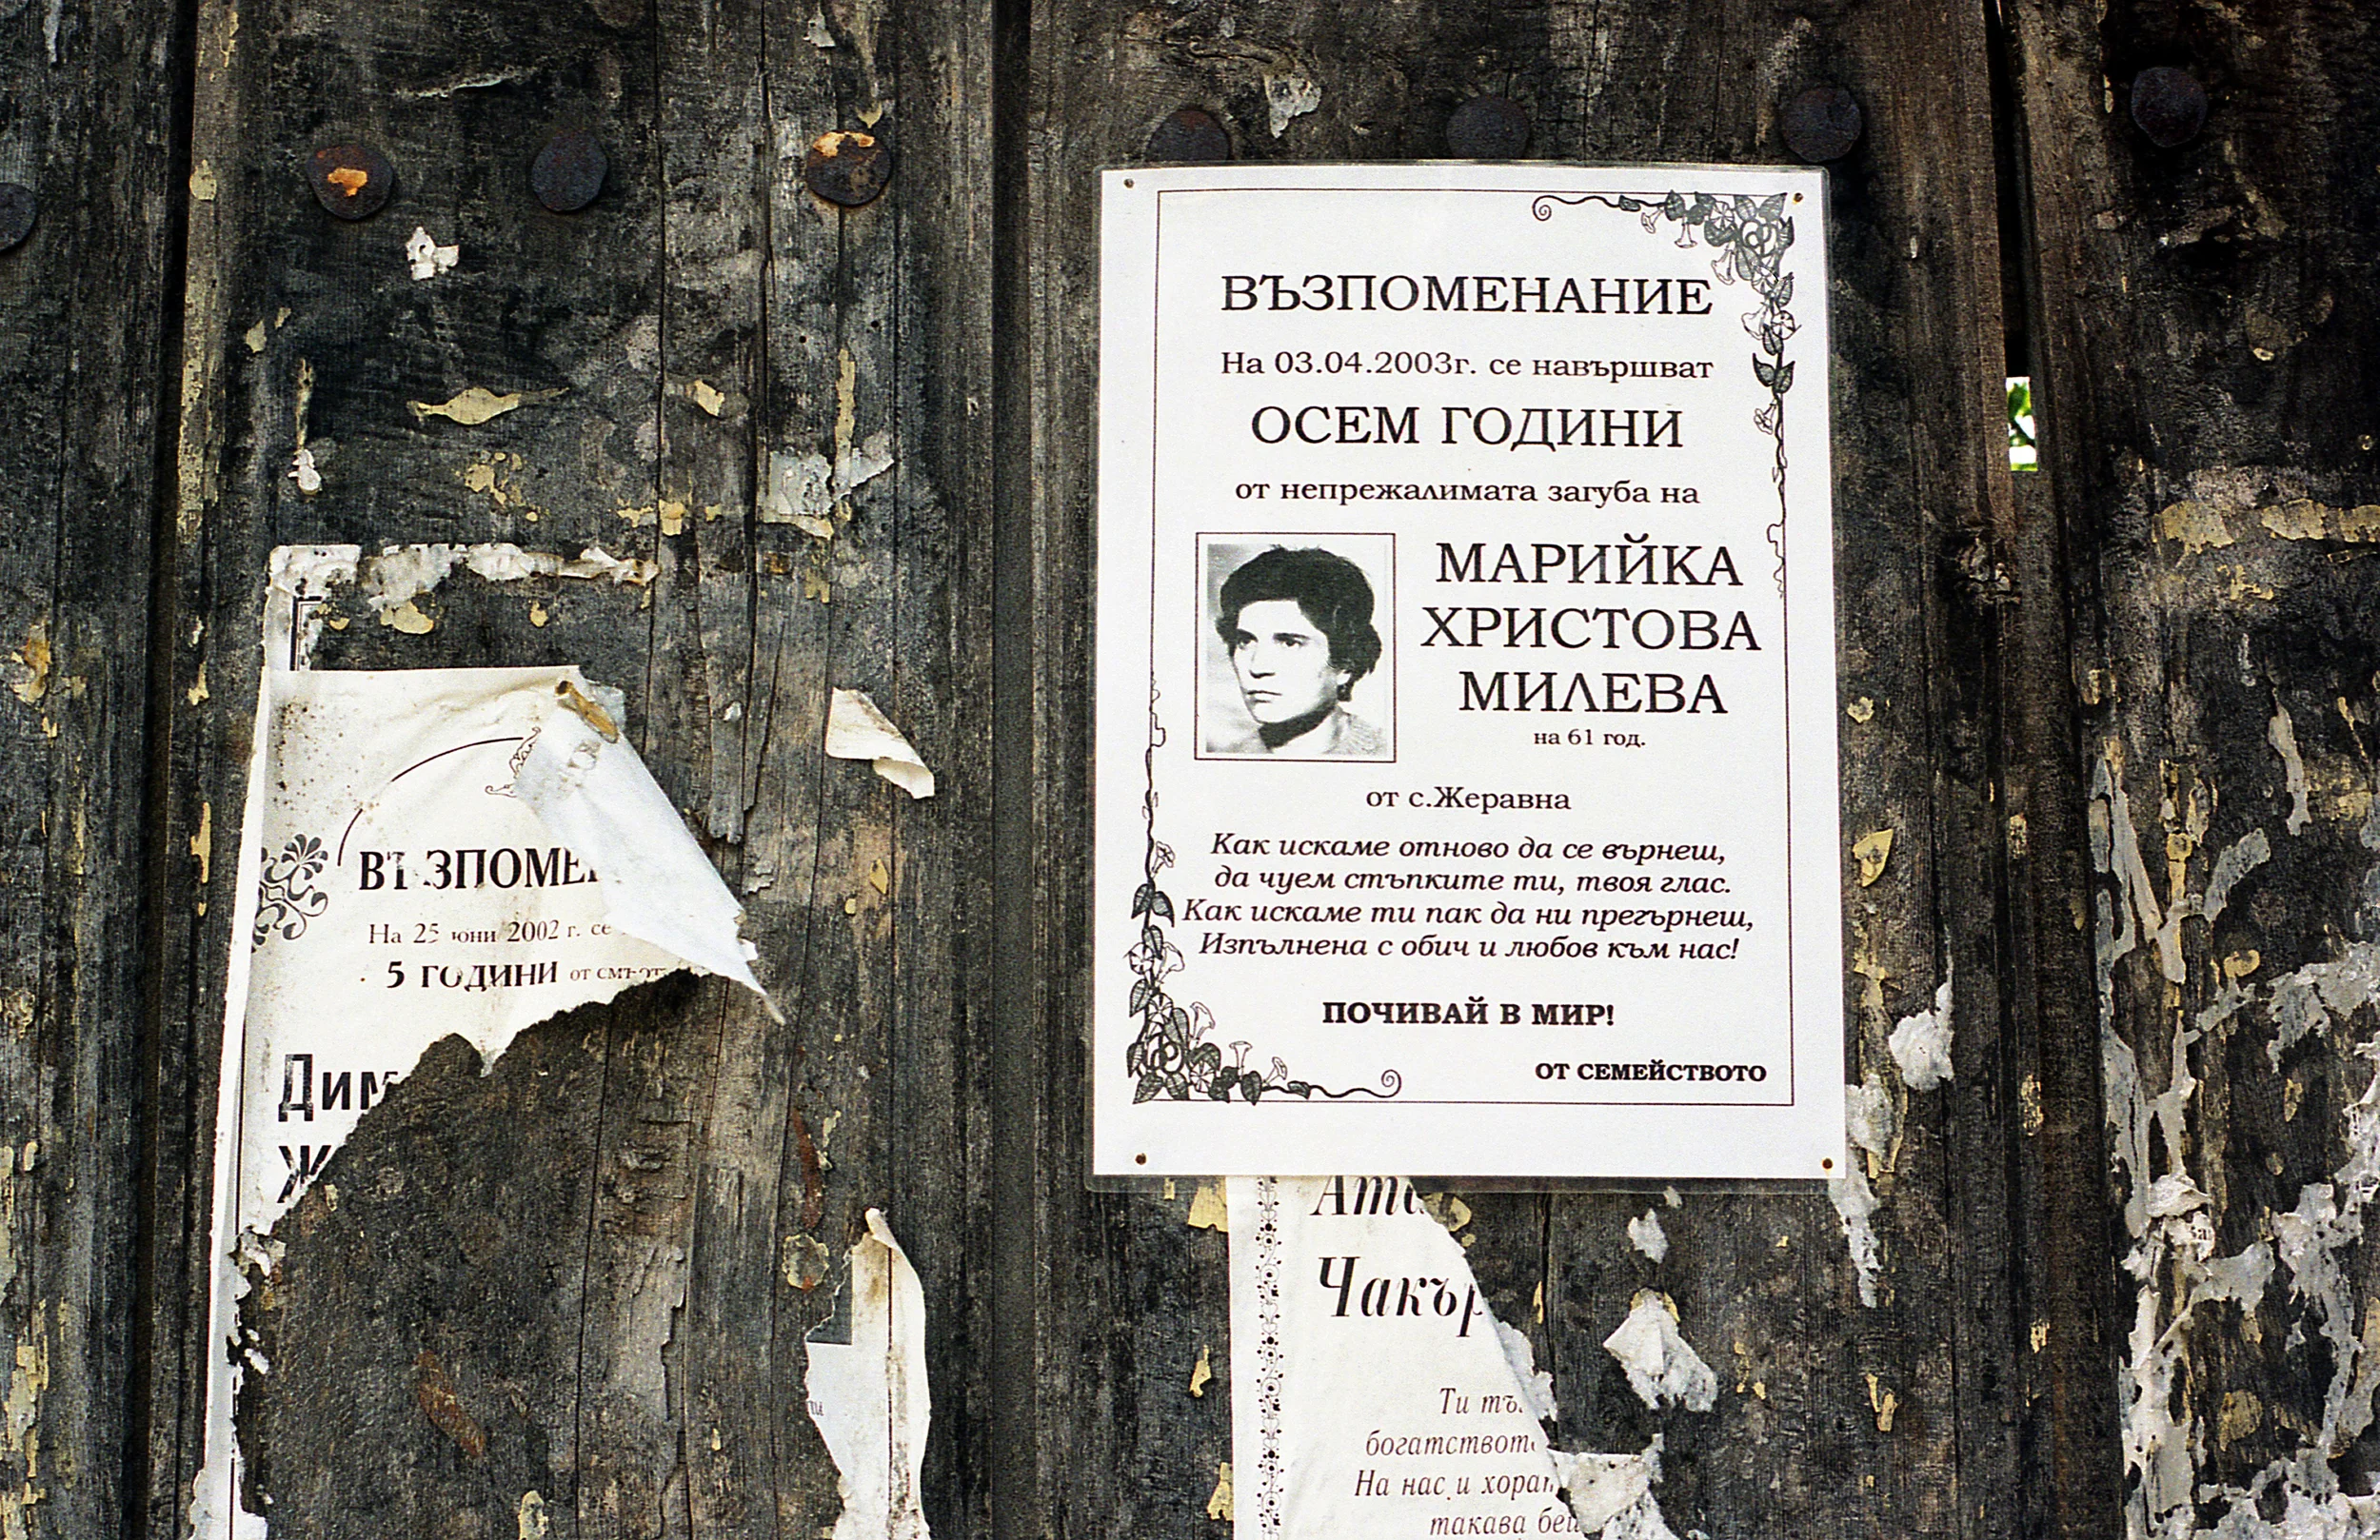 ВЪЗПОМЕНАНИЕ
На 03.04.2003г. се навършват
ОСЕМ ГОДИНИ
от непрежалимата загуба на
МАРИЙКА
ХРИСТОВА
МИЛЕВА
на 61 год.
от с.Жеравна
Как искаме отново да се върнеш,
да чуем стъпките ти, твоя глас.
Как искаме ти пак да ни прегърнеш,
Изпълнена с обич и любов към нас!
ПОЧИВАЙ В МИР!
ОТ СЕМЕЙСТВОТО
На 25 юни 2002 г. се
5 ГОДИНИ от
Ти
На нас и
такава